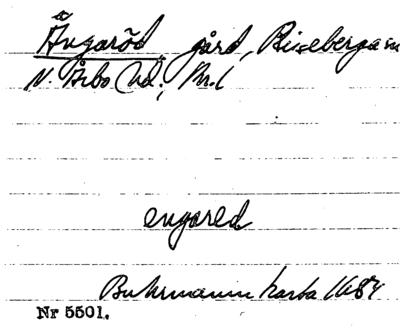 Ängaröd gård, Riseberga sn
N. Åsbo hd., M. l
engared
Buhrmanns karta 1684
Nr 5501.